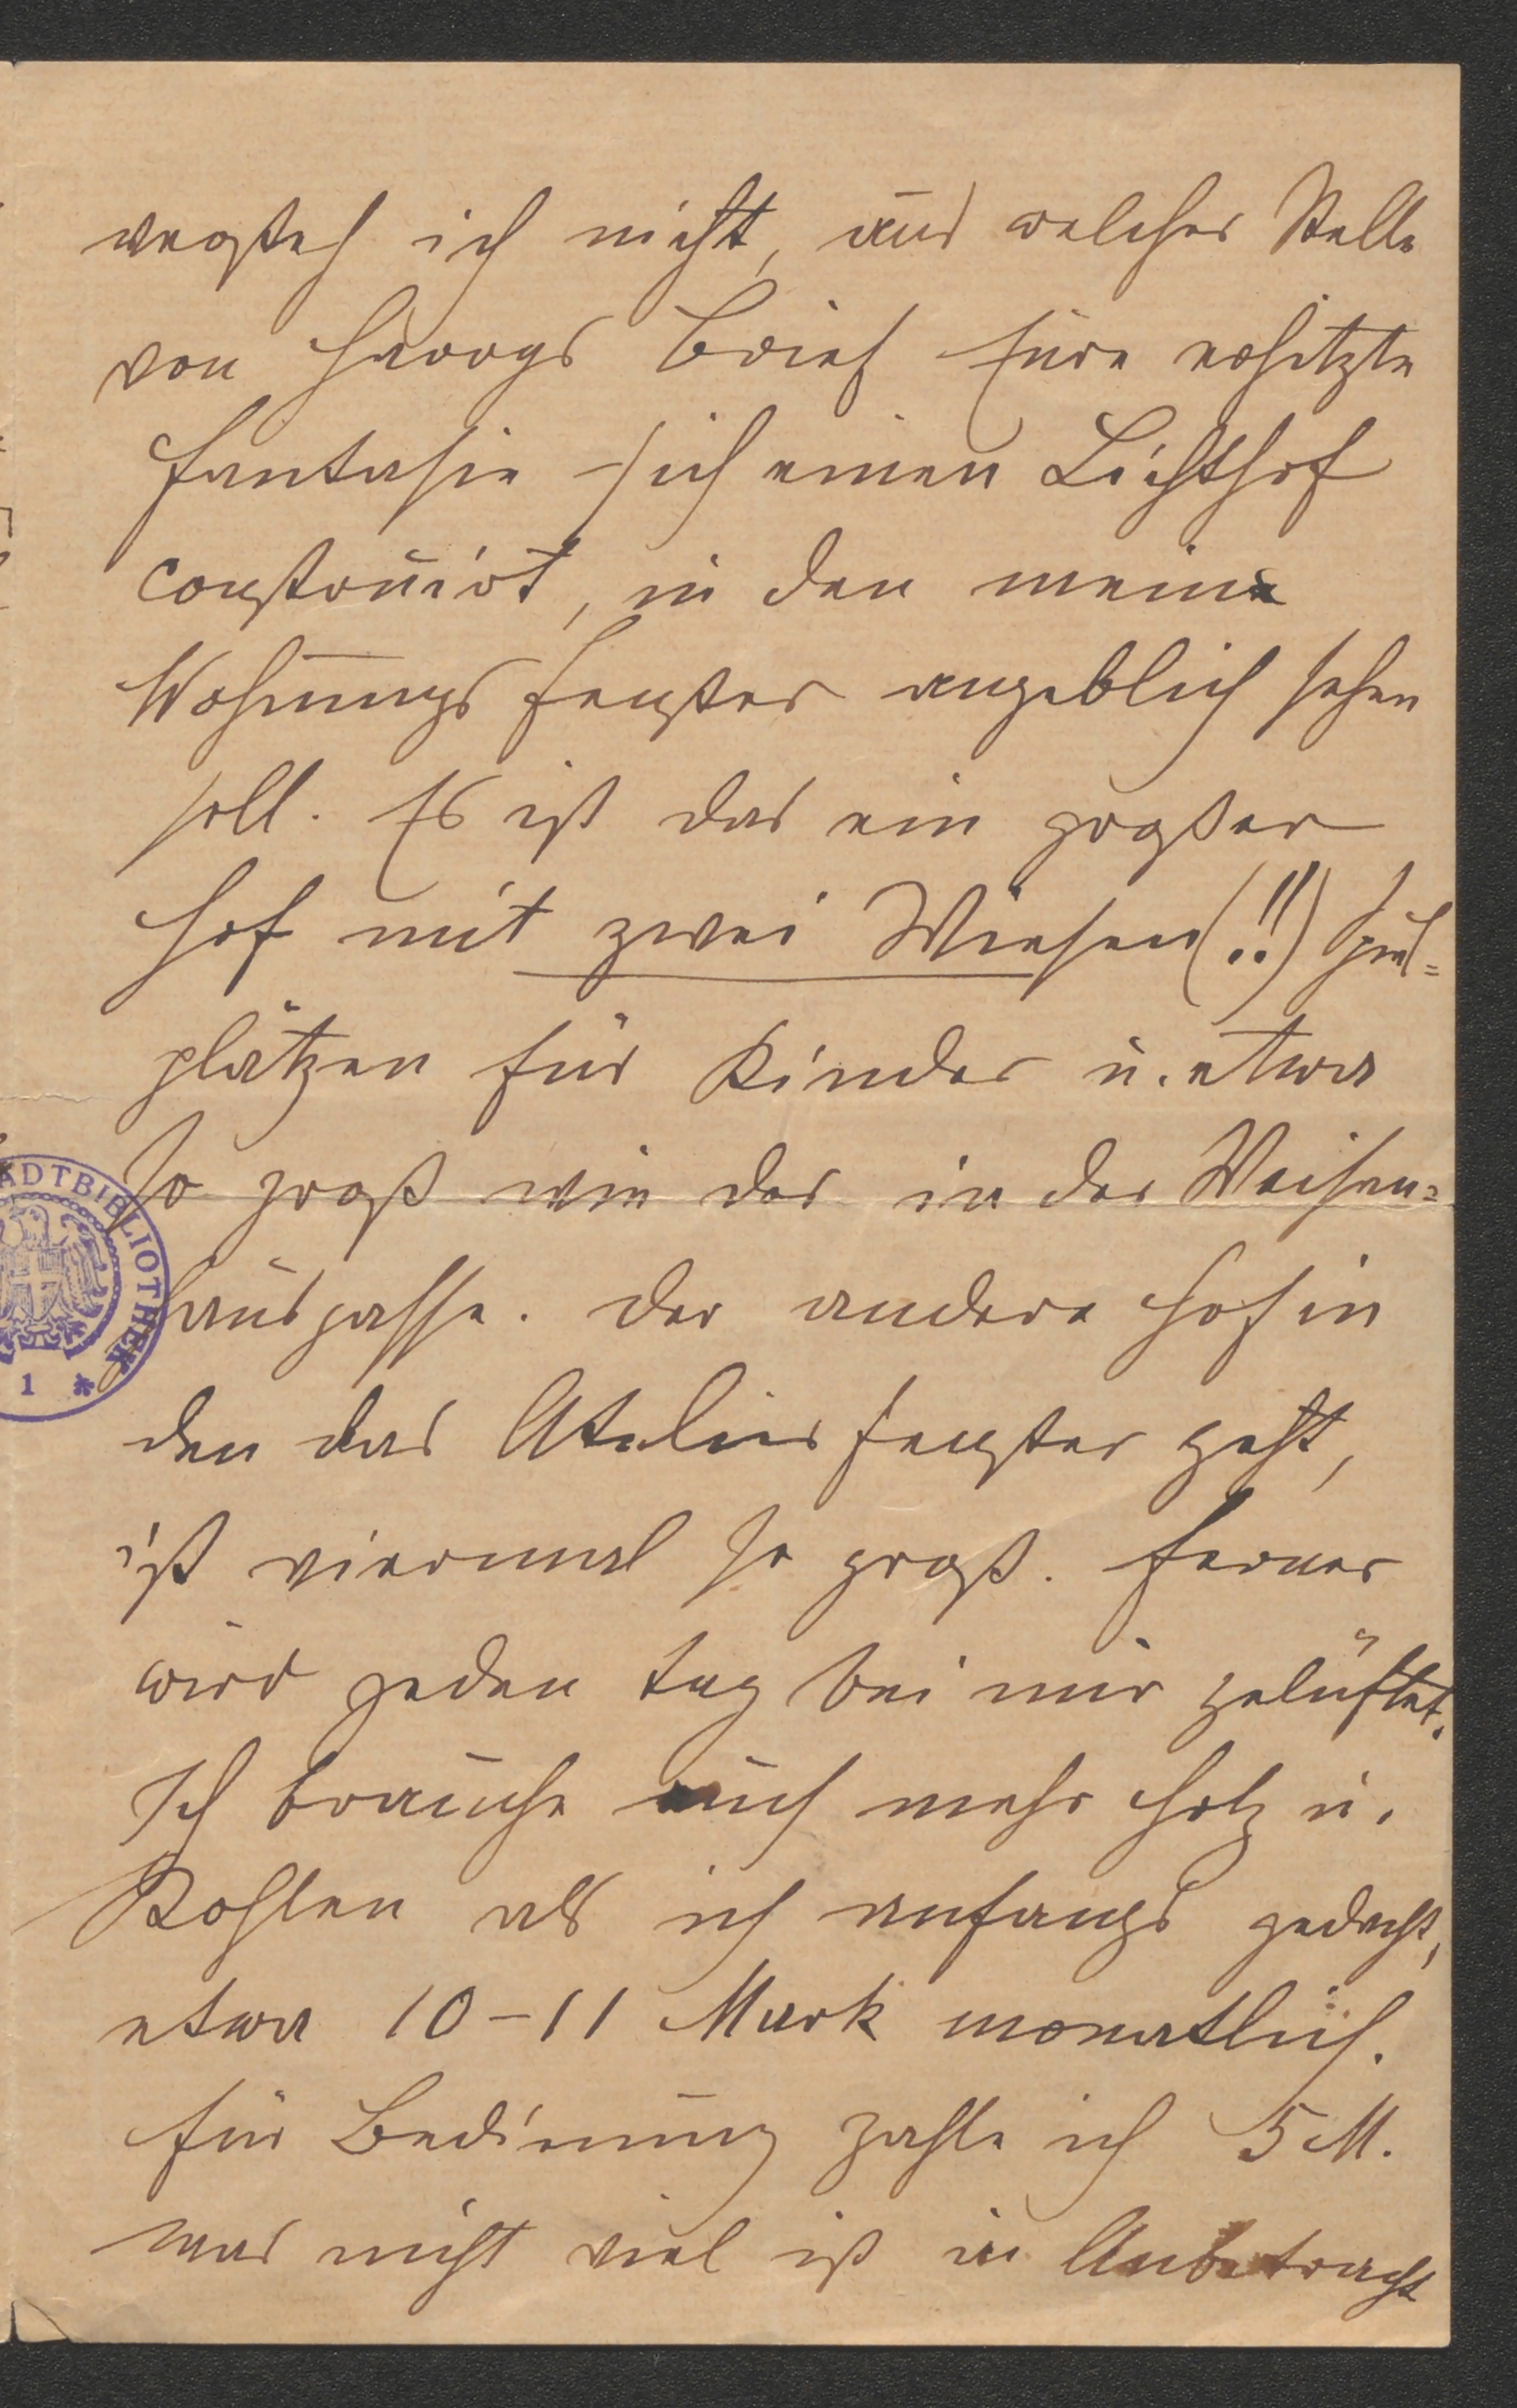 versteh ich nicht, aus welcher Stelle
von Georgs Brief Eure erhitzte
Fantasie sich einen Lichthof
construirt, in den meine
Wohnungsfenster angeblich sehen
soll. Es ist das ein großer
Hof mit zwei Wiesen (!!) Spiel=
plätzen für Kinder u. etwa
so groß wie der in der Waisen=
hausgasse. Der andere Hof in
den das Atelierfenster geht,
ist viermal so groß. Ferner
wird jeden Tag bei mir gelüftet.
Ich brauche auch mehr Holz u.
Kohlen als ich anfangs gedacht,
etwa 10–11 Mark monatlich.
Für Bedienung zahle ich 5 M.
was nicht viel ist in Anbetracht
ADTBIBLIOTHEK
1 *